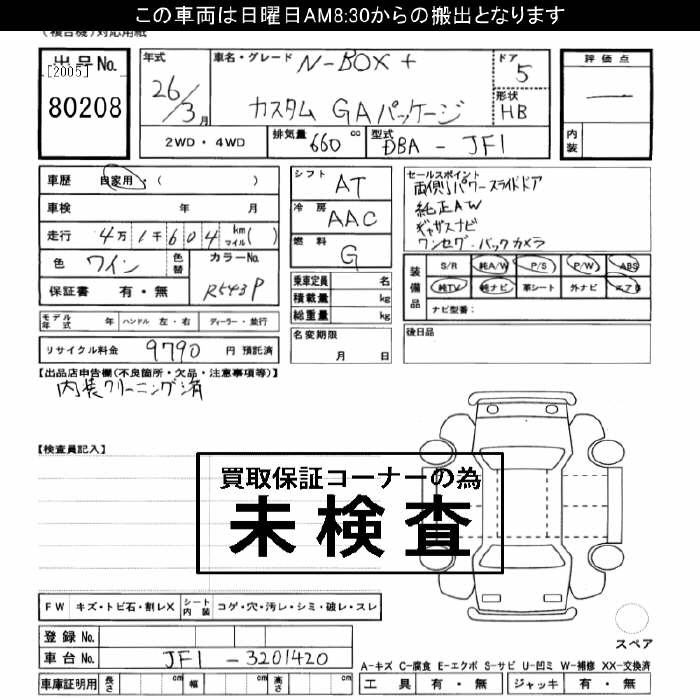 この車両は日曜日AM8:30からの搬出となります
(複合機)対応用紙
出品No.
[2005]
80208
年式
26/3月
車名・グレード N-BOX +
カスタム GAパッケージ
ドア 5
形状 HB
評価点
一
内装
2WD・4WD
排気量 660 cc
型式 DBA - JF1
車歴 自家用・( )
車検 年 月
走行 4万1千604 km マイル( )
色 ワイン 色替
カラーNo. R543P
保証書 有・無
シフト AT
冷房 AAC
燃料 G
乗車定員 名
積載量 kg
総重量 kg
名変期限 月 日
セールスポイント
両側パワースライドドア
純正AW
ギャザスナビ
ワンセグ・バックカメラ
装備品
S/R 純A/W P/S P/W ABS
純TV 純ナビ 革シート 外ナビ エアB
ナビ型番:
後日品
モデル年式 年 ハンドル 左・右 ディーラー・並行
リサイクル料金 9790 円 預託済
【出品店申告欄(不良箇所・欠品・注意事項等)】
内装クリーニング済
【検査員記入】
買取保証コーナーの為
未検査
FW キズ・トビ石・割レX シート内装 コゲ・穴・汚レ・シミ・破レ・スレ
スペア
登録No.
車台No. JF1 - 3201420
A-キズ C-腐食 E-エクボ S-サビ U-凹ミ W-補修 XX-交換済
車庫証明用 長さ cm 幅 cm 高さ cm
工具 有・無 ジャッキ 有・無